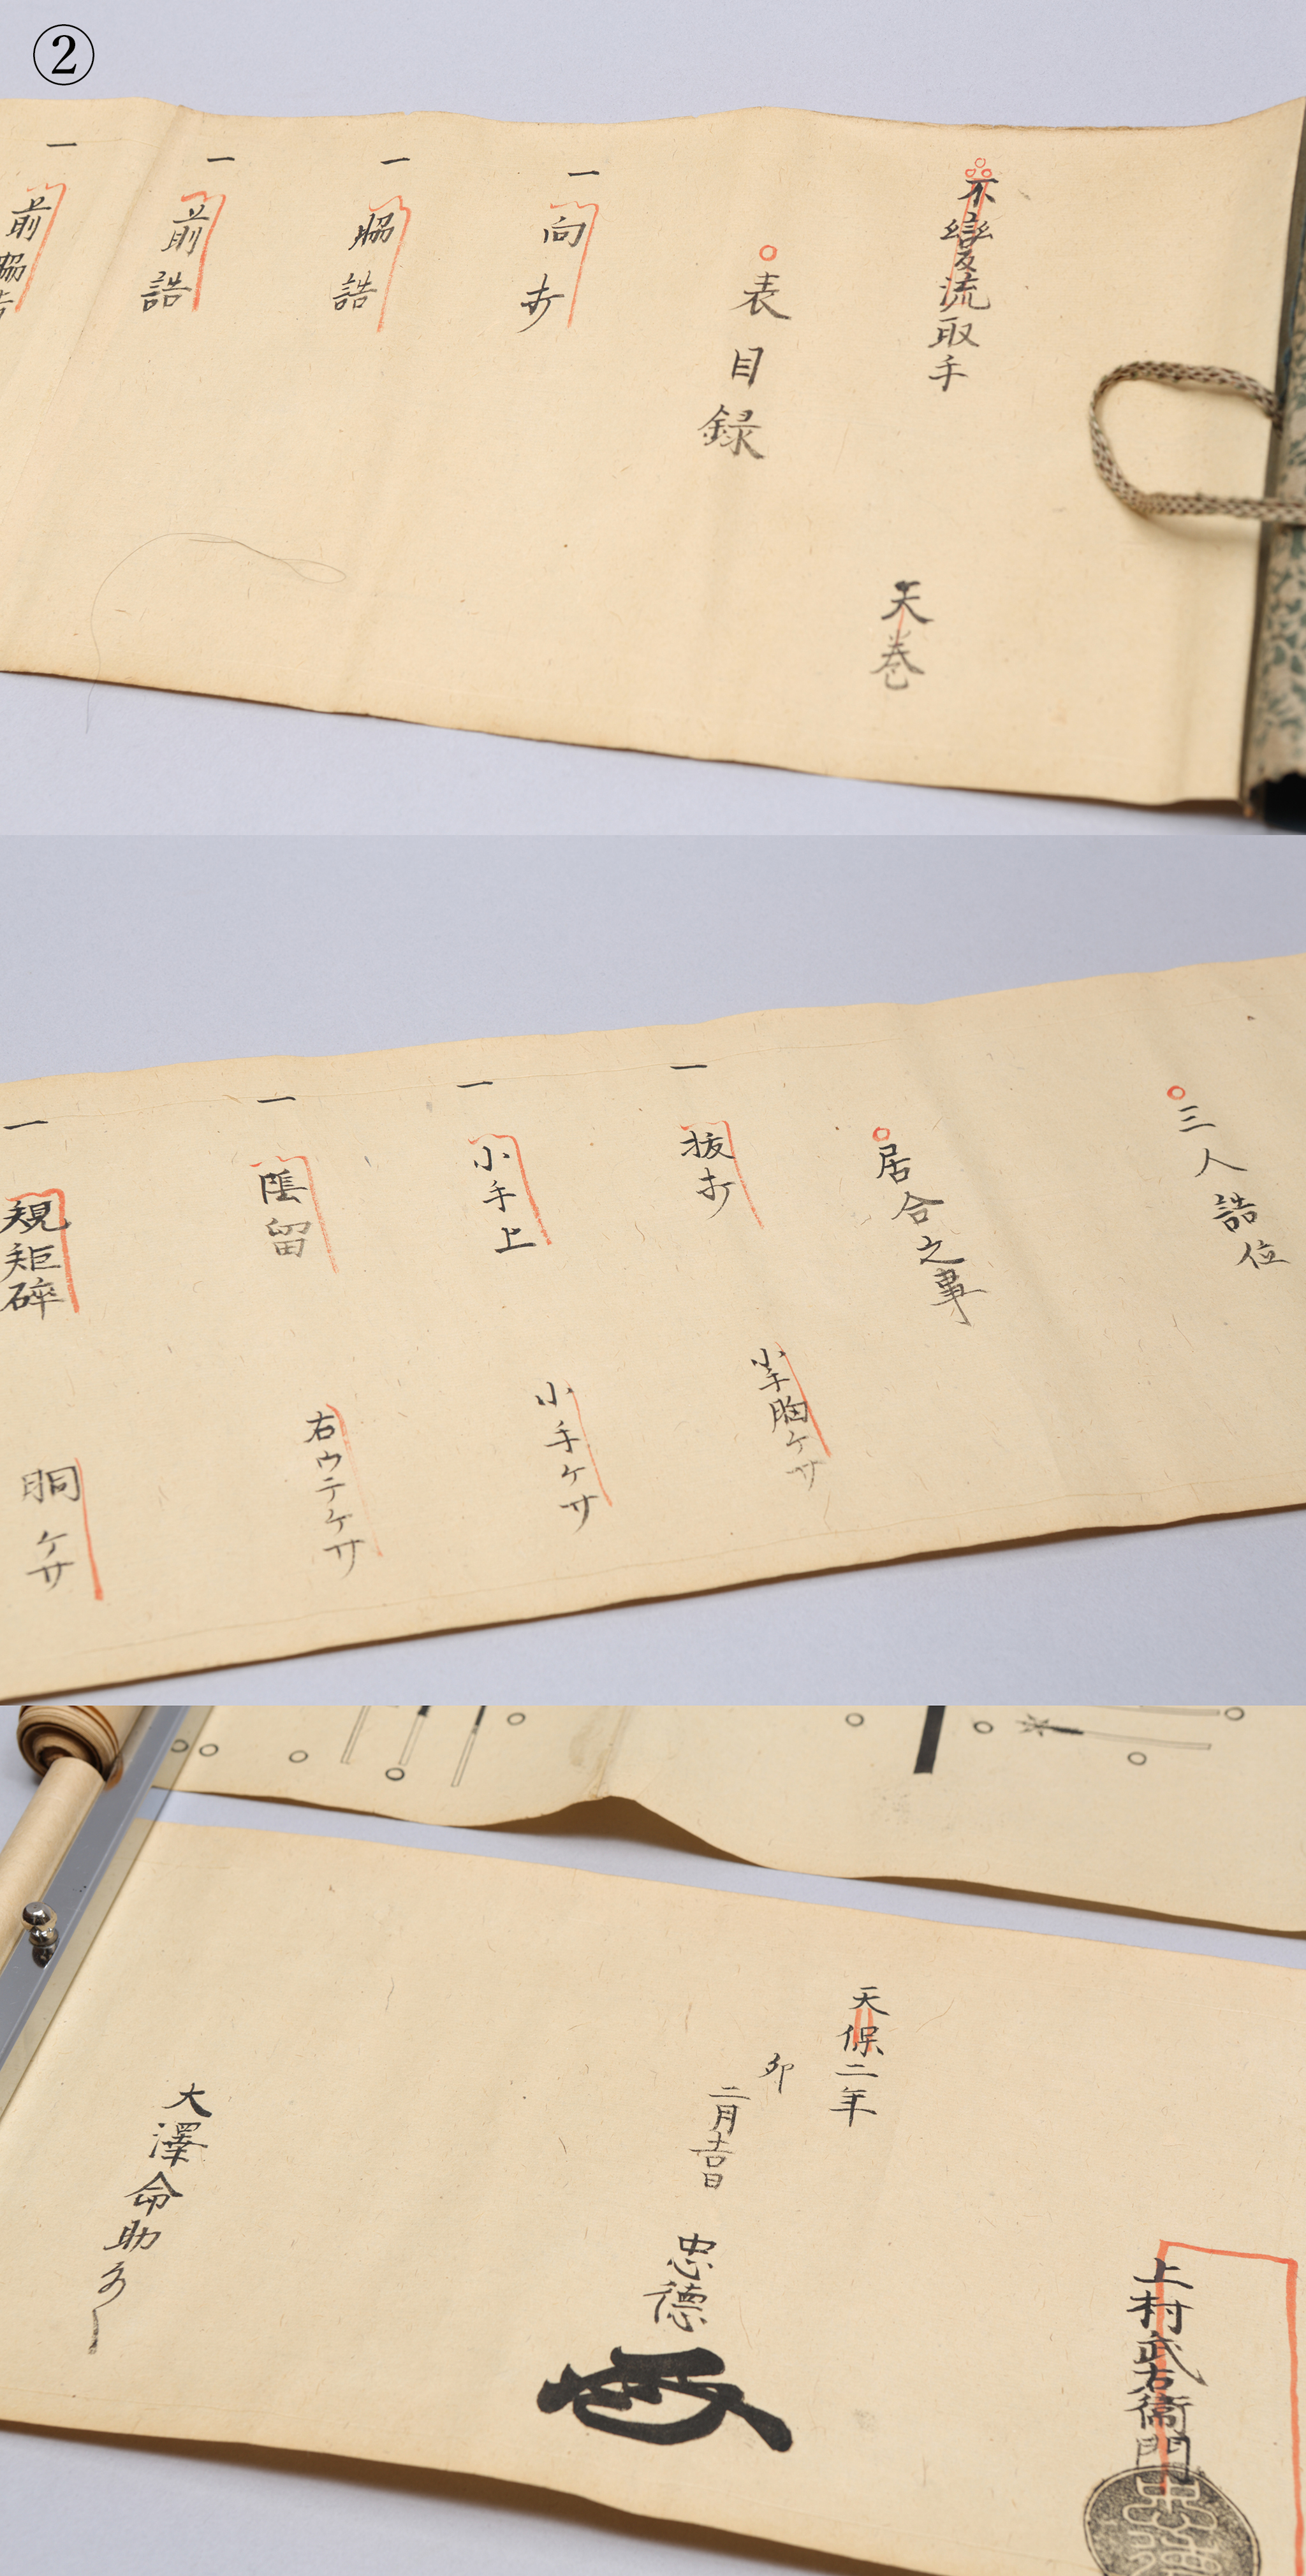 ②
不變流取手
天巻
表目録
一 向打
一 脇誥
一 前誥
一 前脇
三人誥位
居合之事
一 抜打
小手胸ケサ
一 小手上
小手ケサ
一 陰留
右ウテケサ
一 規矩碎
胴ケサ
上村武右衛門
天保二年
卯
二月吉日
忠德
大澤命助